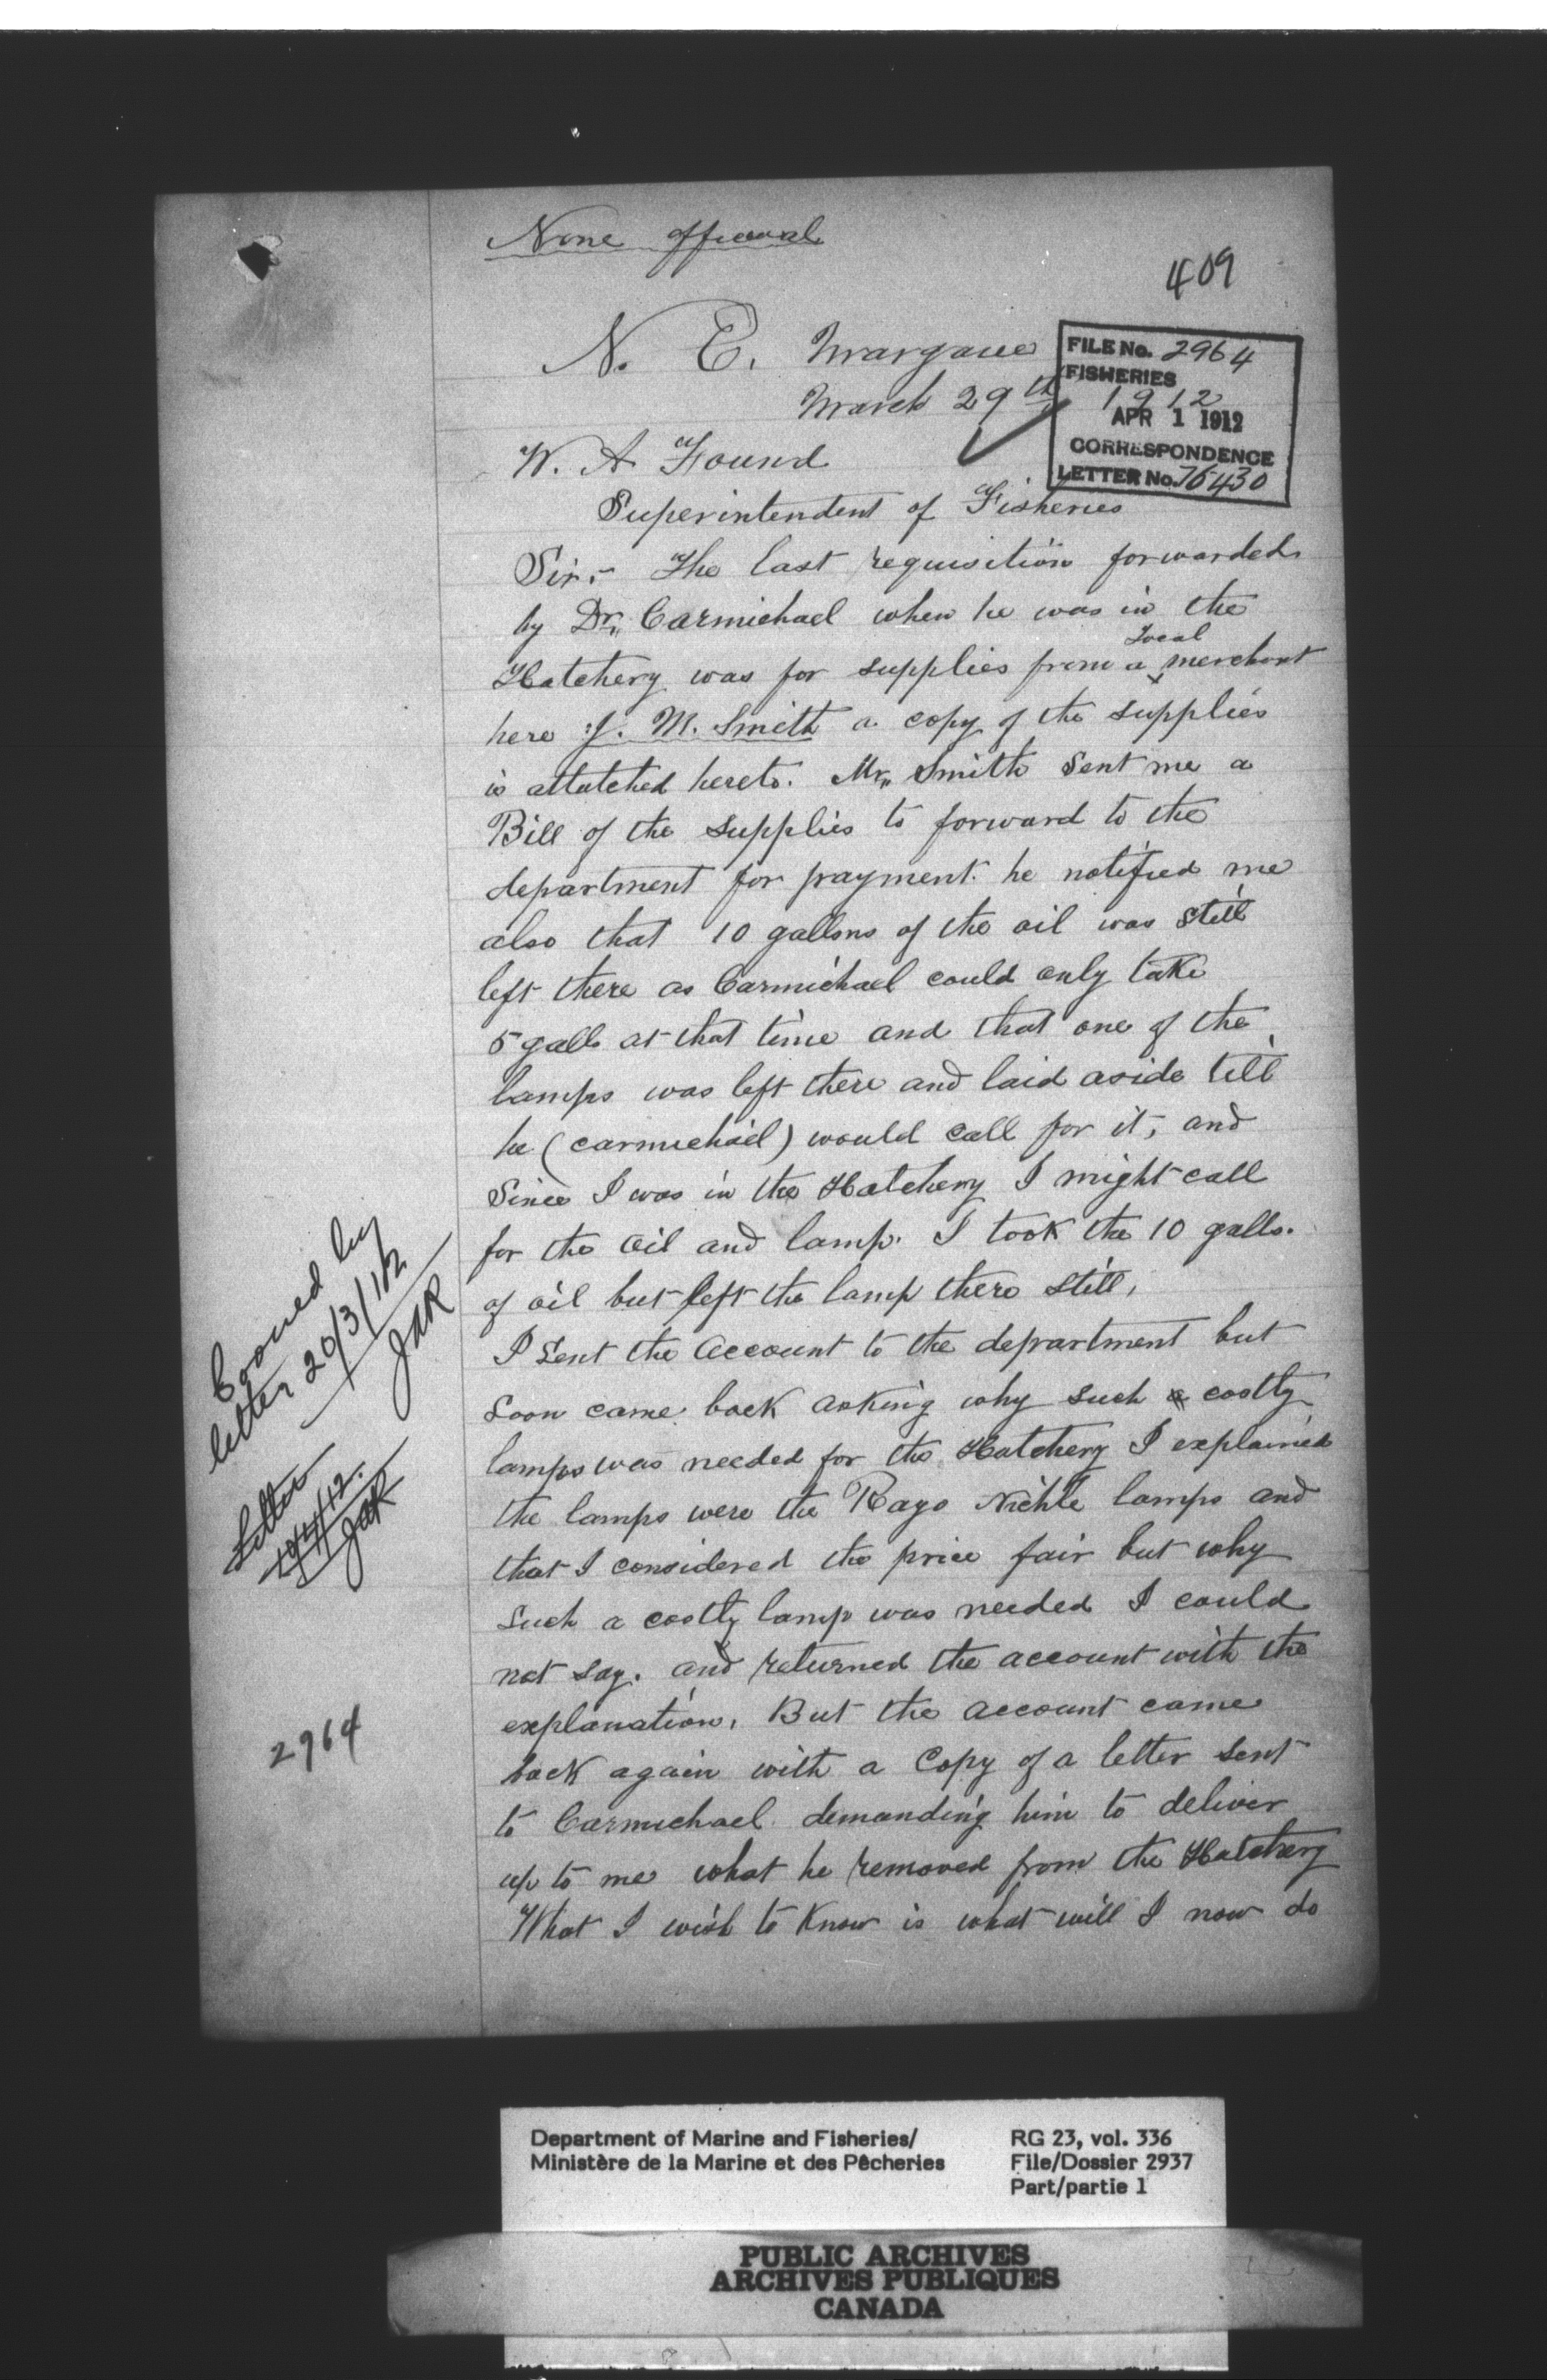 None official
409
N. E. Margaree
March 29th 1912
FILE No. 2964
FISHERIES
APR 1 1912
CORRESPONDENCE
LETTER No. 75430
W. A. Found
Superintendent of Fisheries
Sir:- The last requisition forwarded
by Dr. Carmichael when he was in the
Local
Hatchery was for supplies from a merchant
here J. M. Smith a copy of the supplies
is attatched hereto. Mr. Smith sent me a
Bill of the supplies to forward to the
department for payment. he notified me
also that 10 gallons of the oil was still
left there as Carmichael could only take
5 galls at that time and that one of the
lamps was left there and laid aside till
he (carmichael) would call for it, and
Since I was in the Hatchery I might call
for the oil and lamp. I took the 10 galls.
of oil but left the lamp there still,
I sent the account to the department but
soon came back asking why such costly
lamps was needed for the Hatchery I explained
the lamps were the Rayo Nickle lamps and
that I considered the price fair but why
such a costly lamp was needed I could
not say. and returned the account with the
explanation. But the account came
back again with a Copy of a letter sent
to Carmichael demanding him to deliver
up to me what he removed from the Hatchery
What I wish to Know is what will I now do
letter 20/3/12
JAR
Letter
JAR
2964
Department of Marine and Fisheries/
Ministère de la Marine et des Pêcheries
RG 23, vol. 336
File/Dossier 2937
Part/partie 1
PUBLIC ARCHIVES
ARCHIVES PUBLIQUES
CANADA